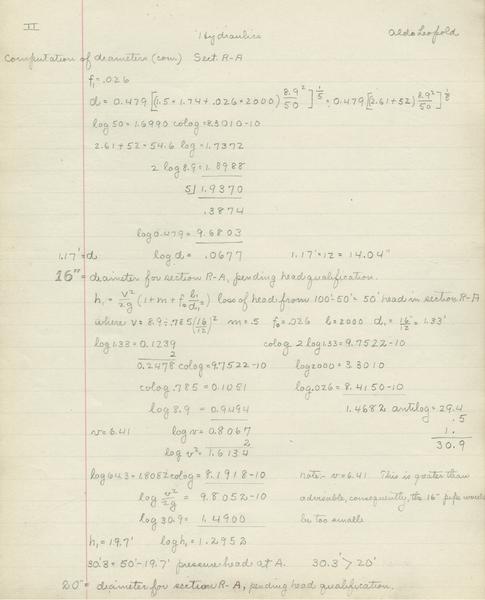 II
Hydraulics
Aldo Leopold
Computation of diameters (con.) Sect. R-A
f₁ = .026
d = 0.479 [(1.5 × 1.74 + .026 × 2000) 8.9²/50]^1/5 = 0.479 [(2.61 + 52) 8.9²/50]^1/5
log 50 = 1.6990 colog = 8.3010-10
2.61 + 52 = 54.6 log = 1.7372
2 log 8.9 = 1.8988
5) 1.9370
.3874
log 0.479 = 9.6803
1.17' = d log d = .0677 1.17' × 12 = 14.04"
16" = diameter for section R-A, pending head qualification.
h₁ = v²/2g (1 + m + f₁ l₁/d₁) = loss of head from 100'-50' = 50' head in section R-A
where v = 8.9 ÷ .785 (16/12)² m = .5 f₁ = .026 l = 2000 d₁ = 16/12 = 1.33'
log 1.33 = 0.1239 colog 2 log 1.33 = 9.7522-10
2
0.2478 colog = 9.7522-10 log 2000 = 3.3010
colog .785 = 0.1051 log .026 = 8.4150-10
log 8.9 = 0.9494 1.4682 antilog = 29.4
.5
v = 6.41 log v = 0.8067 1.
2 30.9
log v² = 1.6134
log 64.3 = 1.8082 colog = 8.1918-10 note:- v = 6.41 This is greater than
log v²/2g = 9.8052-10 advisable, consequently, the 16" pipe would
log 30.9 = 1.4900 be too small
h₁ = 19.7' log h₁ = 1.2952
30.3 = 50'-19.7' pressure head at A. 30.3' > 20'
20" = diameter for section R-A, pending head qualification.